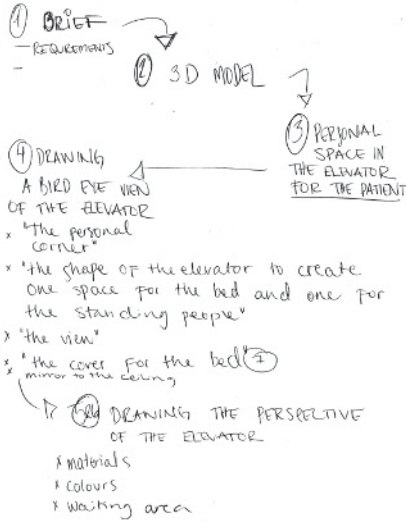 1 BRIEF
- REQUREMENTS
-
2 3D MODEL
3 PERSONAL
SPACE IN
THE ELEVATOR
FOR THE PATIENT
4 DRAWING
A BIRD EYE VIEW
OF THE ELEVATOR
x "the personal
corner"
x "the shape of the elevator to create
one space for the bed and one for
the standing people"
x "the view"
x "the cover for the bed"
x mirror to the ceiling
DRAWING THE PERSPECTIVE
OF THE ELEVATOR
x materials
x colours
x waiting area